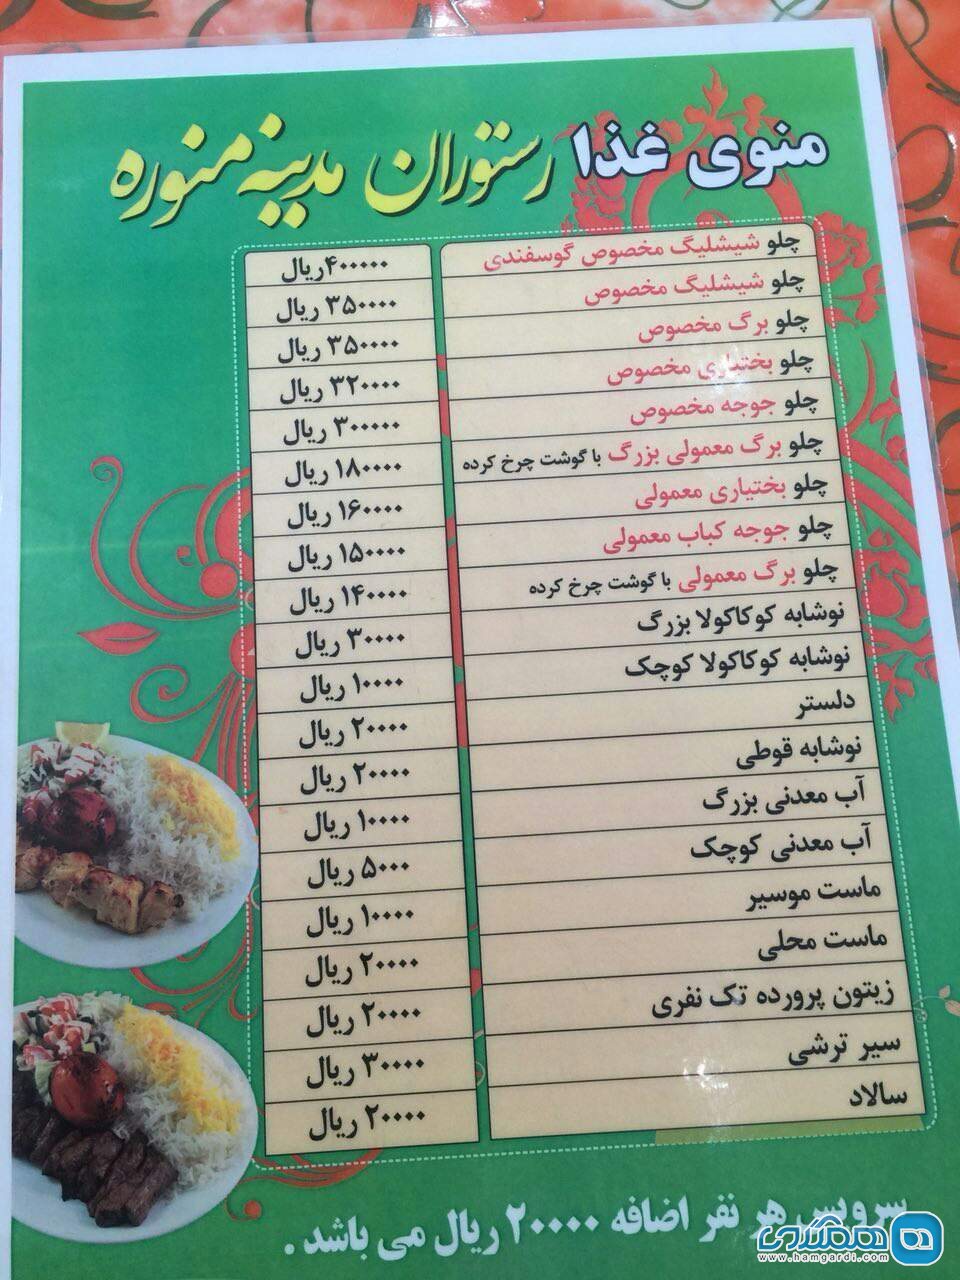 منوی غذا رستوران مدینه منوره
چلو شیشلیگ مخصوص گوسفندی ۴۰۰۰۰۰ریال
چلو شیشلیگ مخصوص ۳۵۰۰۰۰ ریال
چلو برگ مخصوص ۳۵۰۰۰۰ ریال
چلو بختیاری مخصوص ۳۲۰۰۰۰ ریال
چلو جوجه مخصوص ۳۰۰۰۰۰ ریال
چلو برگ معمولی بزرگ با گوشت چرخ کرده ۱۸۰۰۰۰ ریال
چلو بختیاری معمولی ۱۶۰۰۰۰ ریال
چلو جوجه کباب معمولی ۱۵۰۰۰۰ ریال
چلو برگ معمولی با گوشت چرخ کرده ۱۴۰۰۰۰ ریال
نوشابه کوکاکولا بزرگ ۳۰۰۰۰ ریال
نوشابه کوکاکولا کوچک ۱۰۰۰۰ ریال
دلستر ۲۰۰۰۰ ریال
نوشابه قوطی ۲۰۰۰۰ ریال
آب معدنی بزرگ ۱۰۰۰۰ ریال
آب معدنی کوچک ۵۰۰۰ ریال
ماست موسیر ۱۰۰۰۰ ریال
ماست محلی ۲۰۰۰۰ ریال
زیتون پرورده تک نفری ۲۰۰۰۰ ریال
سیر ترشی ۳۰۰۰۰ ریال
سالاد ۲۰۰۰۰ ریال
سرویس هر نفر اضافه ۲۰۰۰۰ ریال می باشد .
همگردی
www.hamgardi.com